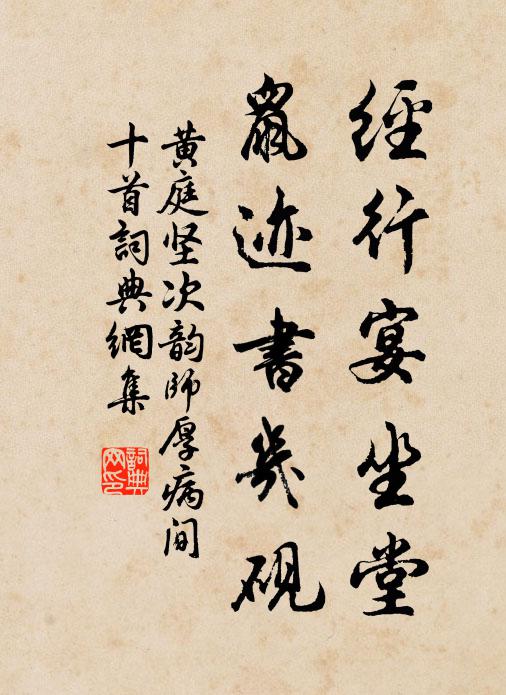 經行宴坐堂
鼠迹書几硯
黄庭坚次韵師厚病间
十首詞典網集
詞典网印